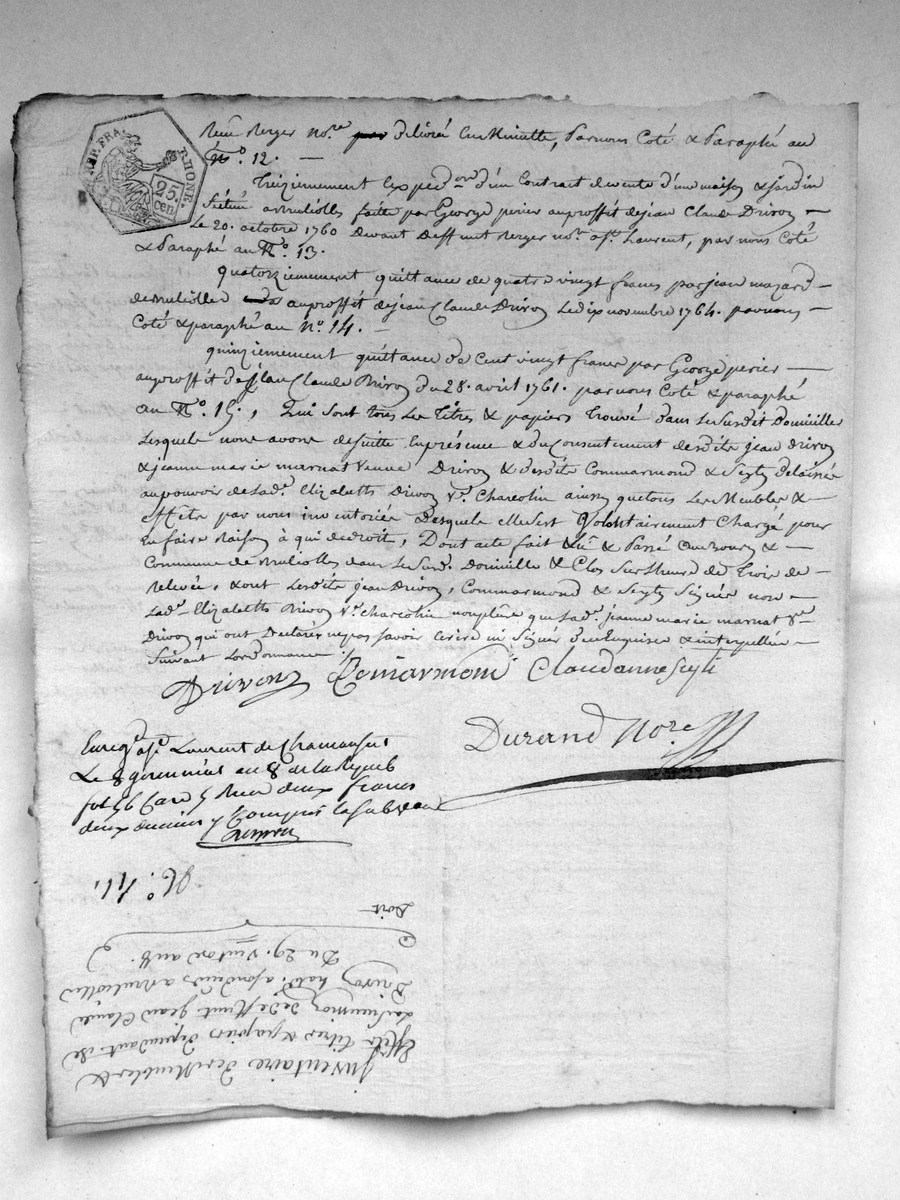 REP. FRA.
RHONE.
25 cen
Reçu Berger no.re délivré en Minutte, Par nous Coté & Paraphé au
N.o 12. —
Treiziemement l'expéd.on d'un Contrat de vente d'une maison & jardin
située a fait par George perier au proffit de jean Claude Drivon —
Le 20. octobre 1760 Devant Deffunt Berger no.re a S.t Laurent, par nous Coté
& Paraphé au N.o 13.
Quatorziemement quittance de quatre vingt francs par jean mazard —
de au proffit de jean Claude Drivon Le dix novembre 1764. par nous —
Coté & paraphé au N.o 14. —
quinziemement quittance de Cent vingt francs par George perier —
au proffit de Jean Claude Drivon du 28. avril 1761. par nous Coté & paraphé
au N.o 15., Qui sont tous Les Titres & papiers Trouvé dans Le Susdit Domicille
Lesquels nous avons de suitte En présence & du Consentement desdits jean Drivon
& jeanne marie marnat Veuve Drivon & desdits Commarmond & Seyty delaissé
au pouvoir de Lad.e Elizabeth Drivon V.e Charcotin ainsy que tous Les Meubles & —
effets par nous inventoriés Desquels elle s'est Volontairement Chargé pour
En faire Raison à qui de droit, Dont acte fait Lu & Passé Au Bourg & —
Commune de dans Le Susd. Domicille & Clos Sur Lheure de Trois de —
relevée, & ont Lesdits jean Drivon, Commarmond & Seyty Signés non —
Lad.e Elizabeth Drivon V.e Charcotin non plus que Lad.e jeanne marie marnat V.e —
Drivon qui ont Déclarés ne pas savoir écrire ni Signer D'en Enquises & interpellées —
Suivant Lordonnance ./.
Drivon Comarmond Claudanne Seyti
Durand No.re
Enreg.é a S.t Laurent de Chamousset
Le 8 germinal an 8 de la Repub
fol 56 Car 5 Reçu deux francs
deux decimes y Compris la Subvent
N.o 141.
Doit
Inventaire de Meubles &
Effets titres & papiers dépendant de
la Succession de deffunt jean Claude
Drivon
Du 29. Ventose an 8.